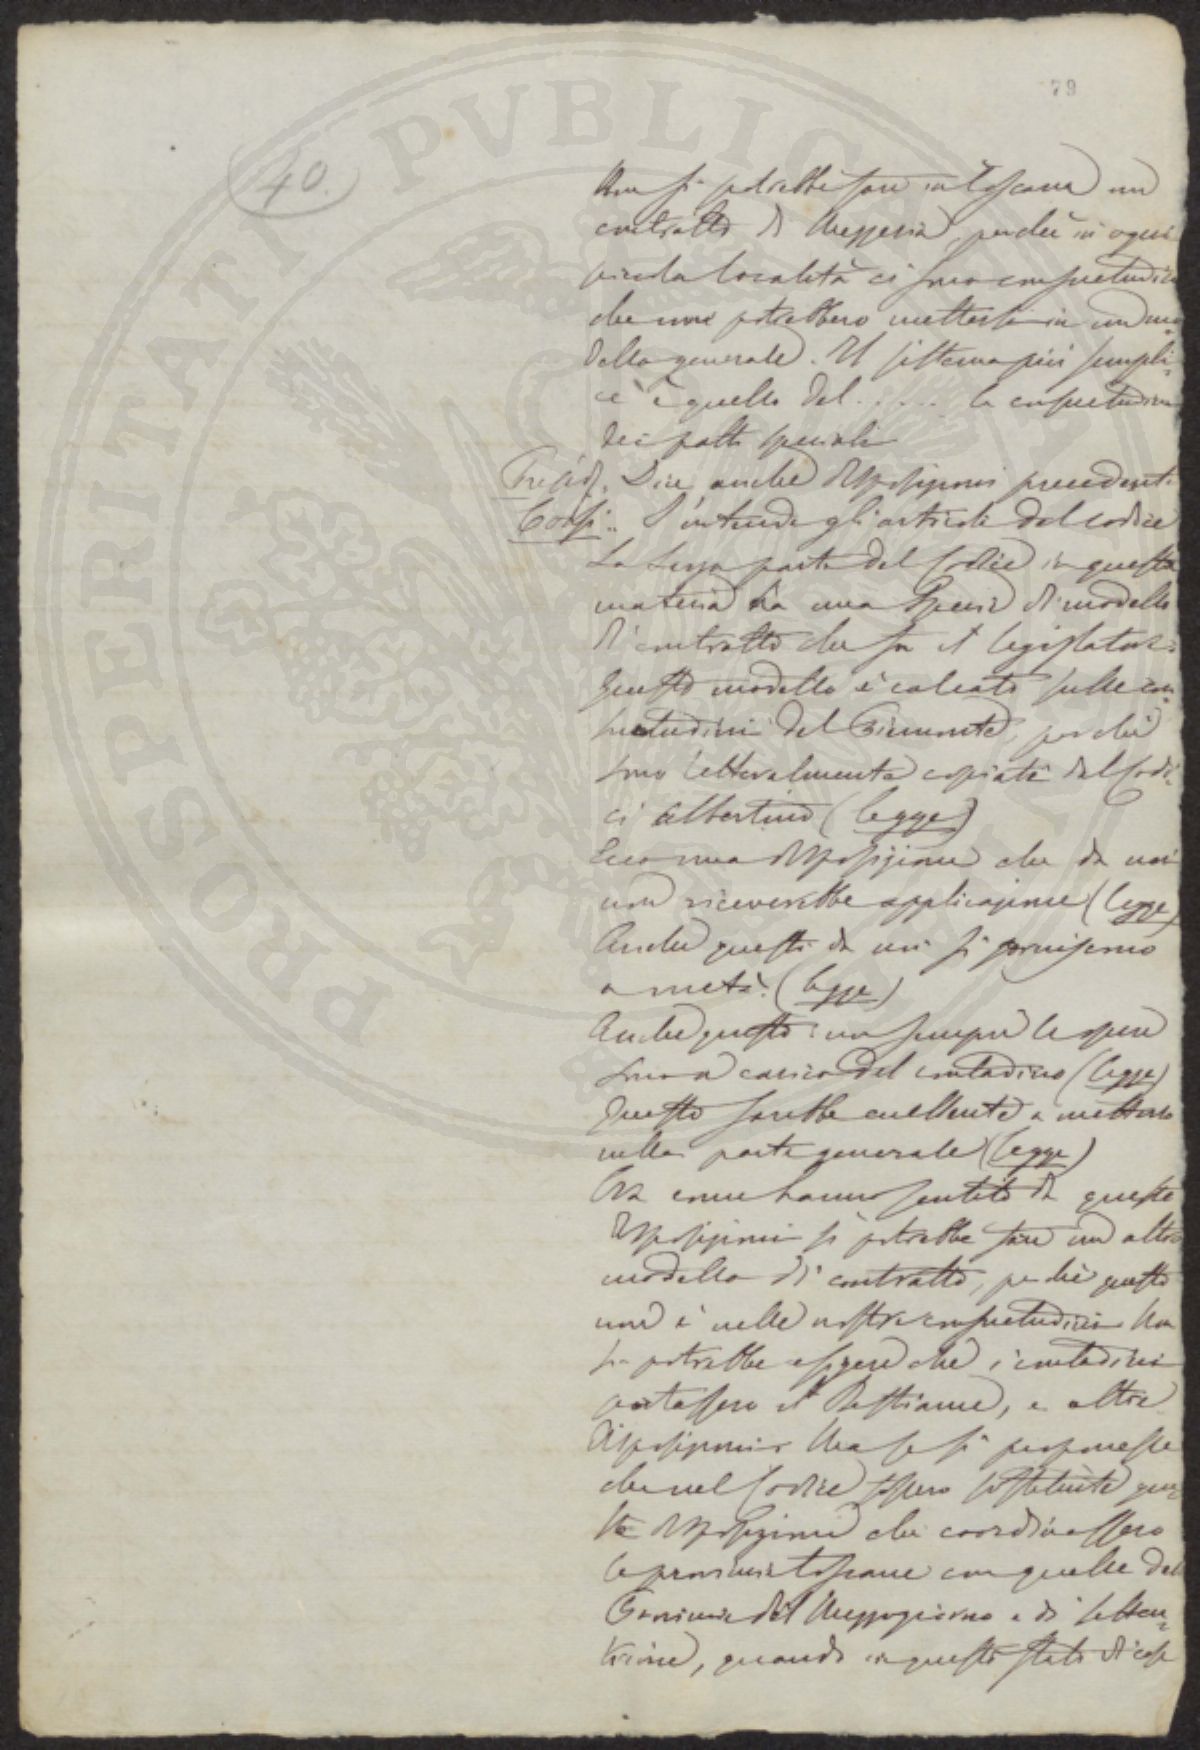 79
40.
Non si potrebbe fare in Toscana un
contratto di Mezzeria, perché in ogni
piccola località ci sono consuetudini
che non potrebbero mettersi in un mo=
dello generale. Il sistema più sempli=
ce è quello del..... la consuetudine
dei patti speciali
Presid. Dice anche disposizioni precedenti
Corsi.. S'intende gli articoli del codice
La terza parte del Codice in questa
materia ha una specie di modello
di contratto che fa il legislatore.
Questo modello è calcato sulle con=
suetudini del Piemonte, perché
sono letteralmente copiate dal Codi=
ce Albertino (legge)
Ecco una disposizione che da noi
non riceverebbe applicazione (legge)
Anche questi da noi si forniscono
a metà. (legge)
Anche questo: non sempre le spese
sono a carico del contadino (legge)
Questo sarebbe eccellente a mettere
nella parte generale (legge)
Ora come hanno sentito da queste
disposizioni si potrebbe fare un altro
modello di contratto, perché questo
non è nelle nostre consuetudini Non
si potrebbe esigere che i contadini
portassero il Bestiame, e altre
disposizioni Ma se si proponesse
che nel Codice fossero sostituite que=
ste disposizioni che coordinassero
le provincie toscane con quelle del
Provincie del Mezzogiorno e di setten=
trione, quando in questo stato di cose